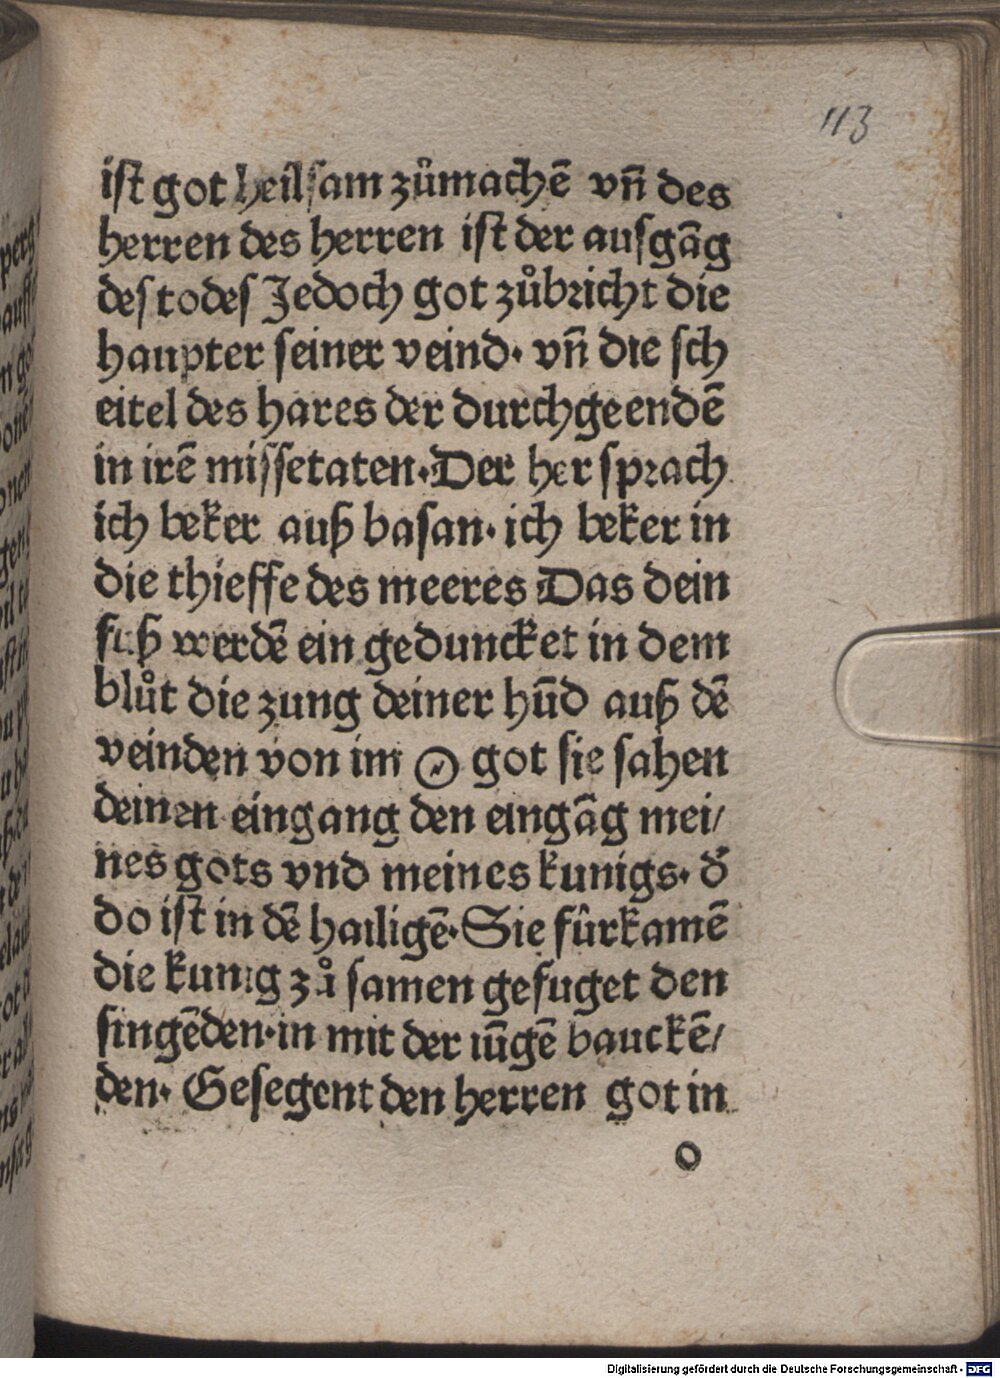 113
ist got heilsam zůmachē vn̄ des
herren des herren ist der ausgāg
des todes Jedoch got zůbricht die
haupter seiner veind· vn̄ die sch
eitel des hares der durchgeendē
in irē missetaten·Der her sprach
ich beker auß basan· ich beker in
die thieffe des meeres Das dein
fuß werdē ein geduncket in dem
blůt die zung deiner hūd auß dē
veinden von im O got sie sahen
deinen eingang den eingāg mei/
nes gots vnd meines kunigs· d̄
do ist in dē hailigē·Sie fûrkamē
die kunig zů samen gefuget den
singēden·in mit der iūgē bauckē/
den· Gesegent den herren got in
o
Digitalisierung gefördert durch die Deutsche Forschungsgemeinschaft - DFG